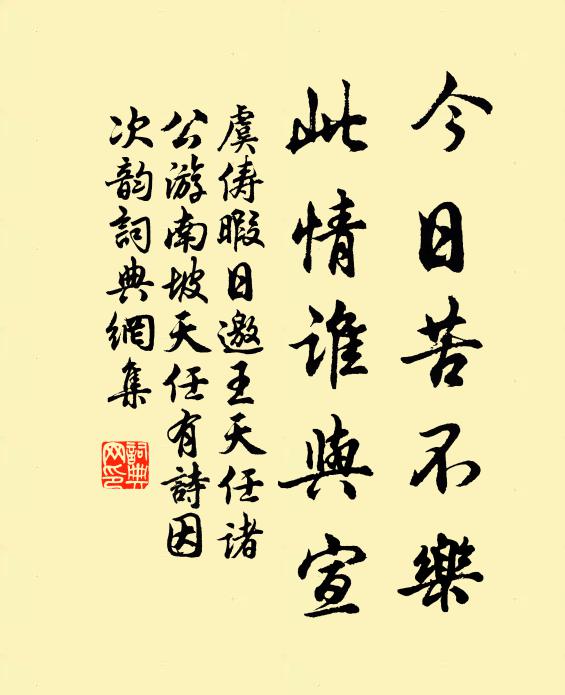 今日苦不樂
此情誰與宣
虞俦暇日邀王天任诸
公游南坡天任有詩因
次韵詞典網集
詞典
网印